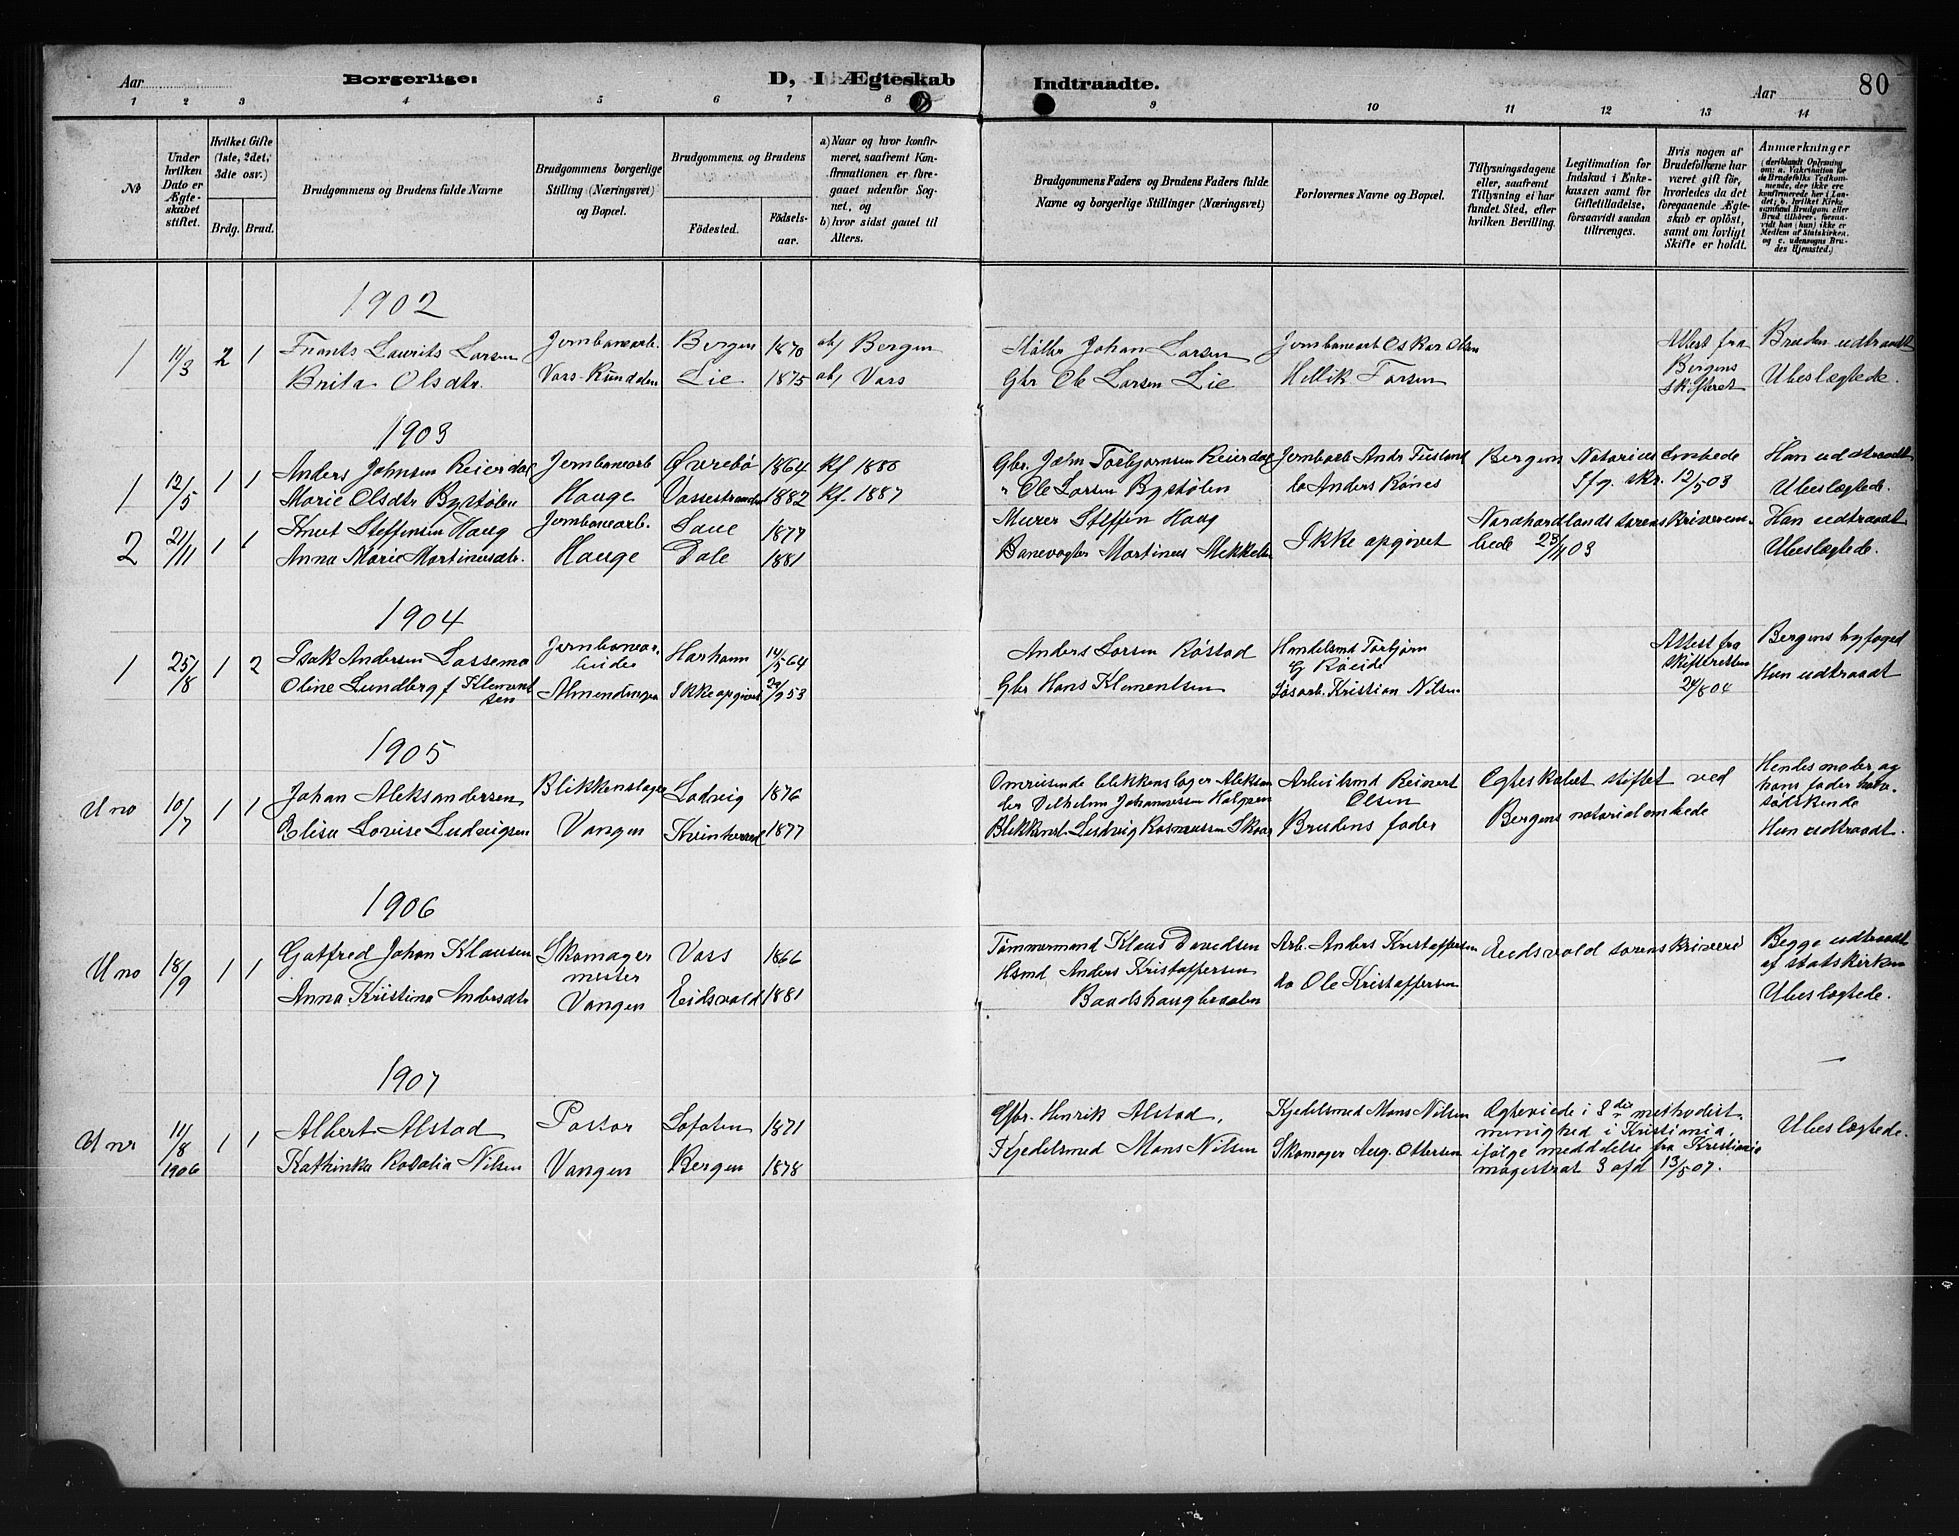 Aar
Borgerlige:
D, I Ægteskab
Indtraadte.
Aar
80
1 2 3 4 5 6 7 8 9 10 11 12 13 14
№
Under hvilken Dato er Ægteskabet stiftet.
Hvilket Gifte (1ste, 2det, 3die osv.)
Brdg. Brud.
Brudgommens og Brudens fulde Navne
Brudgommens borgerlige Stilling (Næringsvei) og Bopæl.
Brudgommens og Brudens
Fødested.
Fødsels-aar.
a) Naar og hvor konfirmeret, saafremt Konfirmationen er foregaaet udenfor Sognet, og
b) hvor sidst gaaet til Alters.
Brudgommens Faders og Brudens Faders fulde Navne og borgerlige Stillinger (Næringsvei)
Forlovernes Navne og Bopæl.
Tillysningsdagene eller, saafremt Tillysning ei har fundet Sted, efter hvilken Bevilling.
Legitimation for Indskud i Enkekassen samt for Giftetilladelse, forsaavidt saadan tiltrænges.
Hvis nogen af Brudefolkene har været gift før, hvorledes da det foregaaende Ægteskab er opløst, samt om lovligt Skifte er holdt.
Anmærkninger
1902
1 11/3 2 1 Frants Laurits Larsen Jernbanearb. Bergen 1870 a/ Bergen
Johan Larsen Jernbanearb Oskar Olsen Attest fra Bruden udtraadt
Brita Olsdtr. Lie 1875 a/ Voss
Gbr Ole Larsen Lie Hellik Bergens skifteret Ubeslægtede.
1903
1 12/5 1 1 Anders Johnsen Reierdal Jernbanearb Øvrebø 1864 kf 1880
Gbr. John Torbjørnsen Reierdal Jernbarb Andr Fusland Bergens Notarius Embede Han udtraadt
Marie Olsdtr Bystølen Hauge Vossestranden 1882 kf. 1887
" Ole Larsen Bystølen do Anders Rønes Sfg. skr. 12/5 03 Ubeslægtede.
2 21/11 1 1 Knut Steffensen Haug Jernbanearb. 1877
Murer Steffen Haug Ikke opgivet Nordhordlands sorenskriverem- Han udtraadt
Anna Marie Martinusdtr. Hauge Dale 1881
Banevogter Martinus Mikkelsn bede 23/11 03 Ubeslægtede.
1904
1 25/8 1 2 Isak Andersen Lossemo Jernbanear-beider Harham 14/5 64
Anders Larsen Røstad Handelsmd Torbjørn G Attest fra skifteretten Bergens byfoged
Oline Lundberg f Klementsen Ikke opgivet 53
Gbr Hans Klementsen Løsarb. Kristian Nilsen 24/8 04 Hun udtraadt
1905
U no 10/7 1 1 Johan Aleksandersen Blikkenslager Ladvig 1876
Omreisende blikkenslager Aleksander Vilhelm Johannessen Arbeidsmd Reinert Olsen Egteskabet stiftet ved Hendes moder og hans fader halv-sødskende
Elisa Lovise Ludvigsen Vangen Kvinherred 1877
Blikkensl. Ludvig Rasmussen Brudens fader Bergens notarialembede Hun udtraadt.
1906
U no 18/9 1 1 Gotfred Johan Klausen Skomagermester Voss 1866
Tømmermand Klaus Davidsen Arb. Anders Kristoffersen Eidsvold sorenskriveri Begge udtraadt af statskirken
Anna Kristina Andersdtr Vangen Eidsvold 1881
Hsmd Anders Kristoffersen do Ole Kristoffersen Ubeslægtede.
1907
U nr 11/8 1906 1 1 Albert Alstad Pastor Lofoten 1871
Gbr. Henrik Alstad. Kjedelsmed Mons Nilsen Egteviede i 3die methodist- Ubeslægtede.
menighed i Kristiania,
Kathinka Rosalia Nilsen Vangen Bergen 1878
Kjedelsmed Mons Nilsen Skomager Aug. Ottersen ifølge meddelelse fra Kristiania
magistrat 3 afd 13/5 07.